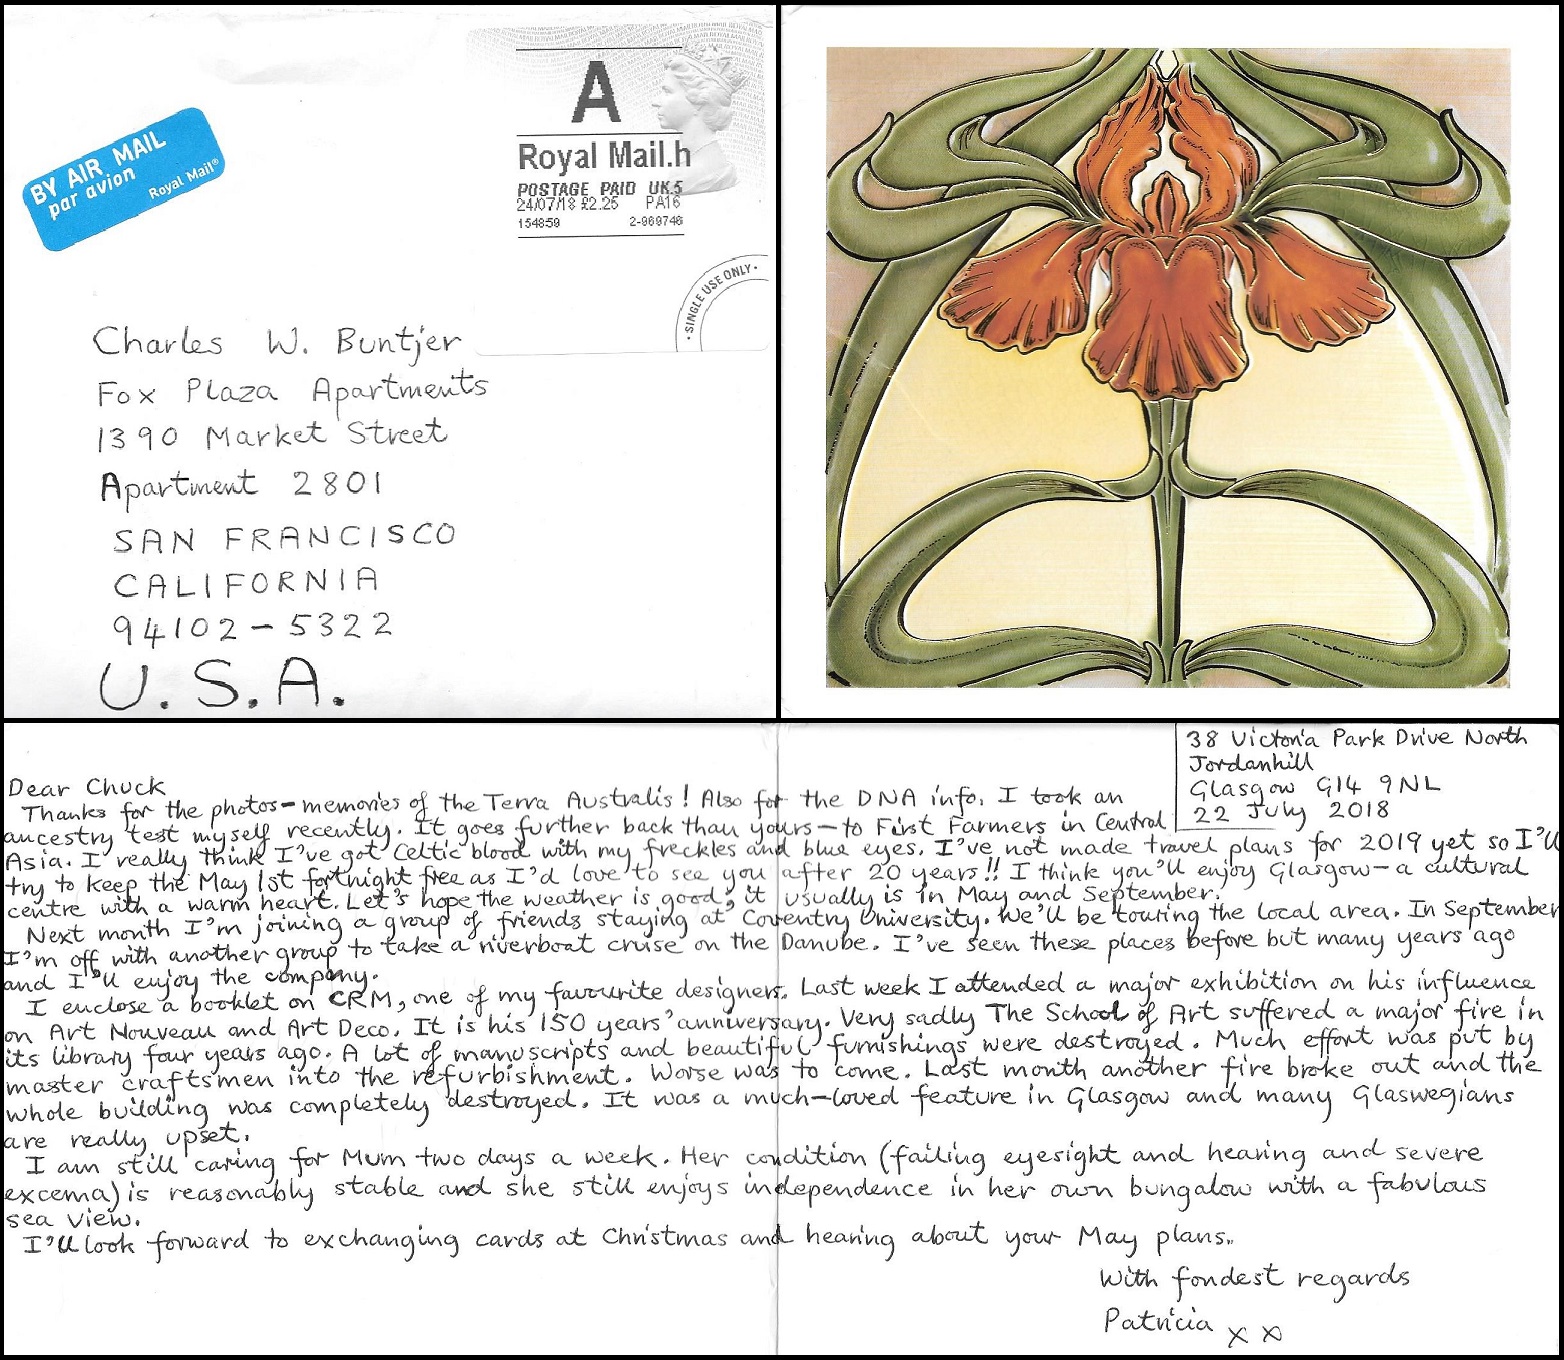 BY AIR MAIL
par avion
Royal Mail®
A
Royal Mail.h
POSTAGE PAID UK.5
24/07/18 £2.25 PA16
154859 2-969746
• SINGLE USE ONLY •
Charles W. Buntjer
Fox Plaza Apartments
1390 Market Street
Apartment 2801
SAN FRANCISCO
CALIFORNIA
94102-5322
U.S.A.
38 Victoria Park Drive North
Jordanhill
Glasgow G14 9NL
22 July 2018
Dear Chuck
Thanks for the photos-memories of the Terra Australis! Also for the DNA info. I took an
ancestry test myself recently. It goes further back than yours-to First Farmers in Central
Asia. I really think I've got Celtic blood with my freckles and blue eyes. I've not made travel plans for 2019 yet so I'll
try to keep the May 1st fortnight free as I'd love to see you after 20 years!! I think you'll enjoy Glasgow-a cultural
centre with a warm heart. Let's hope the weather is good; it usually is in May and September.
Next month I'm joining a group of friends staying at Coventry University. We'll be touring the local area. In September
I'm off with another group to take a riverboat cruise on the Danube. I've seen these places before but many years ago
and I'll enjoy the company.
I enclose a booklet on CRM, one of my favourite designers. Last week I attended a major exhibition on his influence
on Art Nouveau and Art Deco. It is his 150 years' anniversary. Very sadly The School of Art suffered a major fire in
its library four years ago. A lot of manuscripts and beautiful furnishings were destroyed. Much effort was put by
master craftsmen into the refurbishment. Worse was to come. Last month another fire broke out and the
whole building was completely destroyed. It was a much-loved feature in Glasgow and many Glaswegians
are really upset.
I am still caring for Mum two days a week. Her condition (failing eyesight and hearing and severe
excema) is reasonably stable and she still enjoys independence in her own bungalow with a fabulous
sea view.
I'll look forward to exchanging cards at Christmas and hearing about your May plans.
With fondest regards
Patricia x x